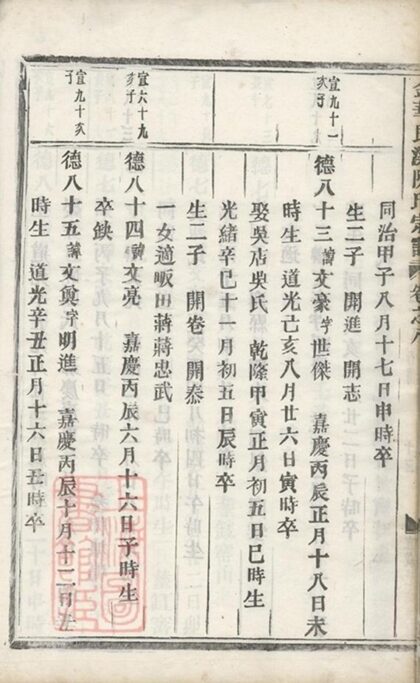 同治甲子八月十七日申時卒
生二子 開進 開志
宜九十一
亥子
德八十三 諱文豪字世傑 嘉慶丙辰正月十八日未
時生 道光己亥八月廿六日寅時卒
娶吳店吳氏 乾隆甲寅正月初五日巳時生
光緒辛巳十一月初五日辰時卒
生二子 開卷 開泰
一女適畈田蔣蔣忠武
宜六十九
亥子
德八十四 諱文亮 嘉慶丙辰六月十六日子時生
卒缺
宜九十亥
子
德八十五 諱文奠字明進 嘉慶丙辰十月十二日丑
時生 道光辛丑正月十六日丑時卒